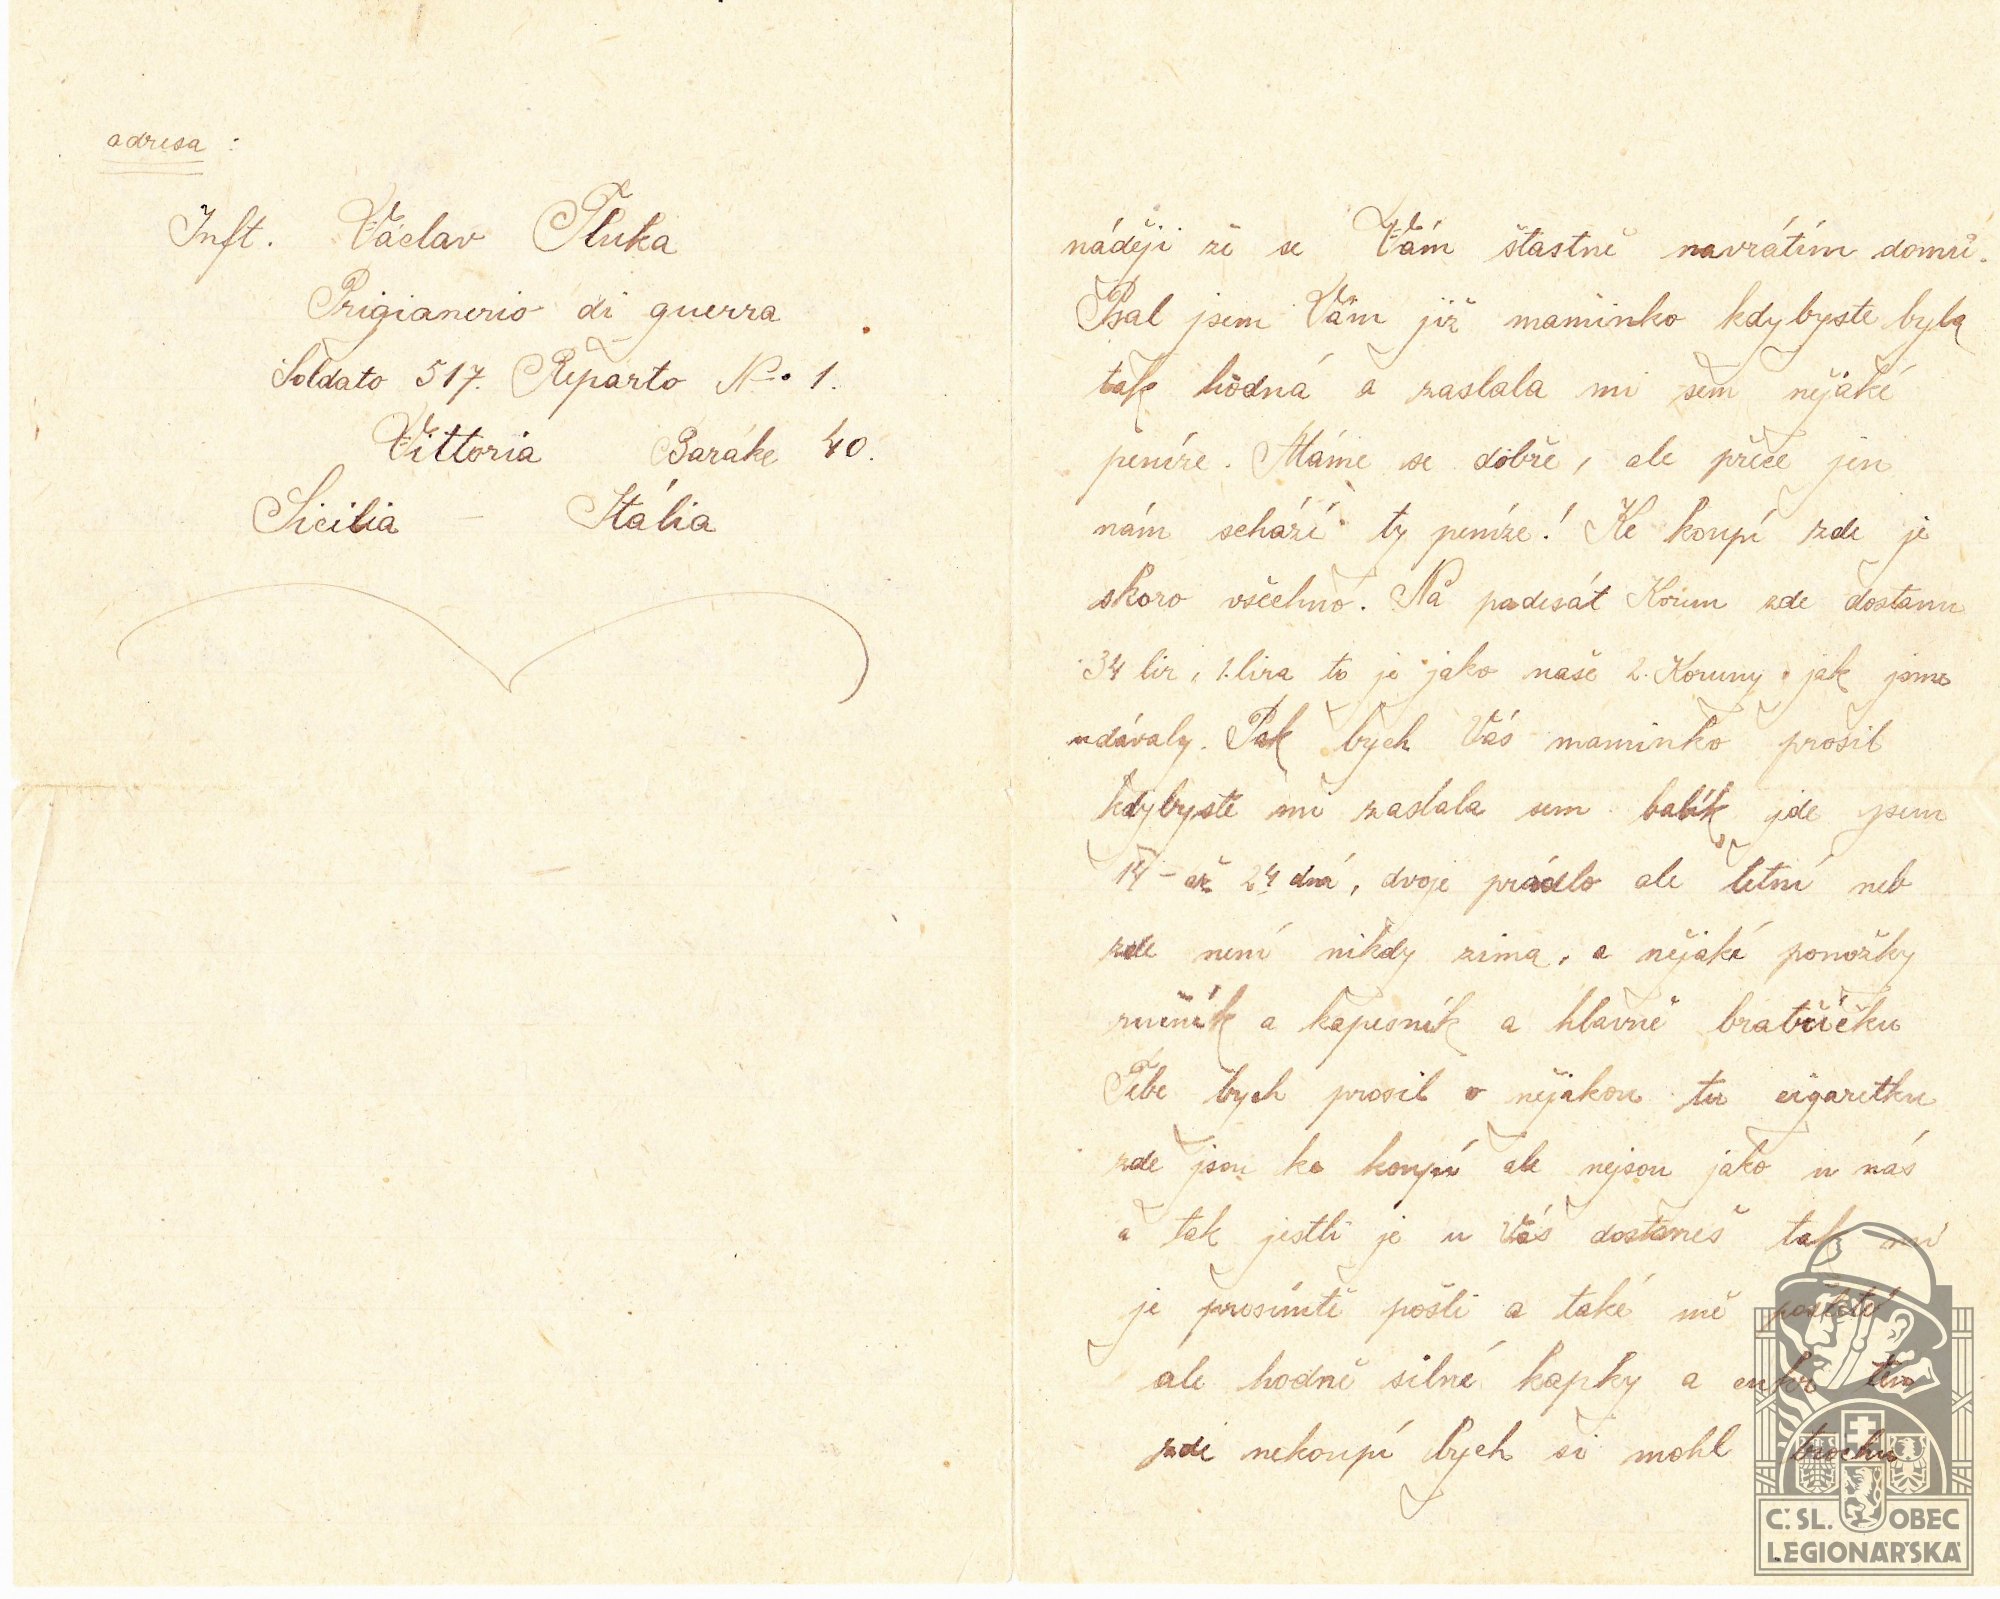 adresa :
Inft. Václav Pluka
Prigianerio di guerra
Soldato 517. Reparto No. 1.
Vittoria Baráke 40.
Sicilia – Itália
náději že se Vám štastně navrátím domů.
Psal jsem Vám již maminko kdybyste byla
tak hodná a zaslala mi sem nějaké
peníze. Máme se dobře, ale přece jen
nám schází ty peníze! Ke koupí zde je
skoro všechno. Na padesát Korun zde dostanu
34 lir, 1. lira to je jako naše 2. Koruny jak jsme
udávaly. Pak bych Vás maminko prosil
kdybyste mi zaslala sem balík jde jsem
14 – až 24 dná, dvoje prádlo ale letní neb
zde není nikdy zima, a nějaké ponožky
ručník a kapesník a hlavně bratříčku
Tebe bych prosil o nějakou tu cigaretku
zde jsou ke koupi ale nejsou jako u nás
a tak jestli je u Vás dostaneš tak mi
je prosímtě pošli a také mě pošlete
ale hodně silné kapky a cukr ten
zde nekoupí bych si mohl trochu
Č. SL. OBEC
LEGIONÁŘSKÁ